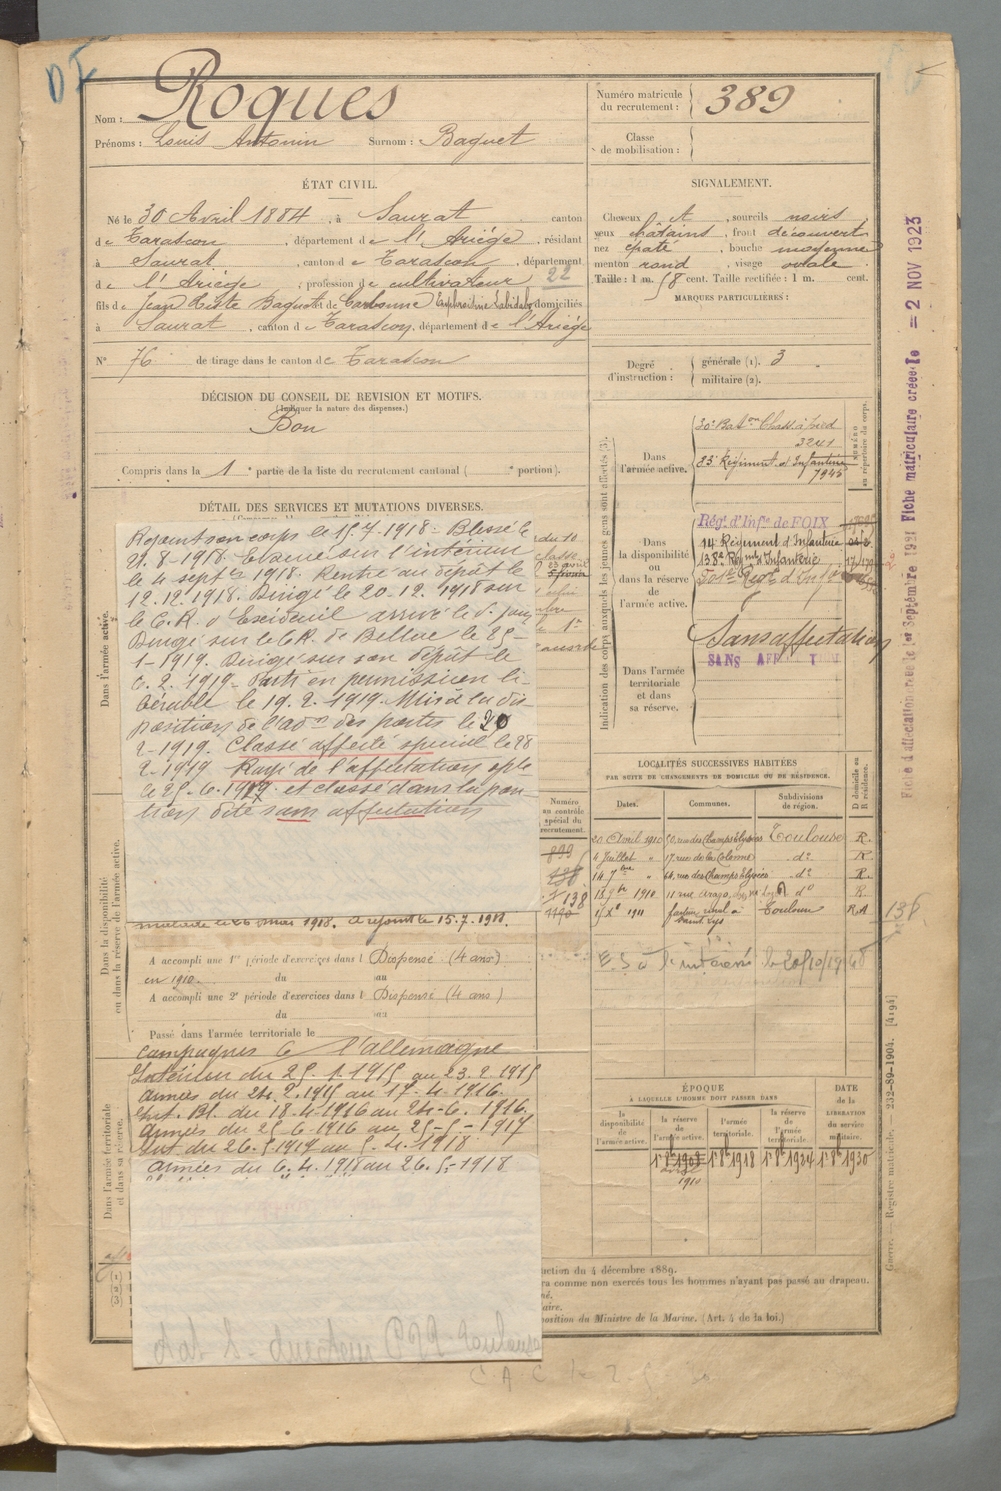 Nom : Roques
Prénoms : Louis Antonin Surnom : Baquet
Numéro matricule
du recrutement : 389
Classe
de mobilisation :
ÉTAT CIVIL.
Né le 30 Avril 1884, à Saurat canton
de Tarascon, département de l'Ariège, résidant
à Saurat, canton de Tarascon, département
de l'Ariège, profession de cultivateur 22
fils de Jean Baquet et de domiciliés
à Saurat, canton de Tarascon, département de l'Ariège
N° 76 de tirage dans le canton de Tarascon
SIGNALEMENT.
Cheveux et, sourcils noirs
yeux châtains, front découvert
nez épaté, bouche moyenne
menton rond, visage ovale
Taille : 1 m. 58 cent. Taille rectifiée : 1 m. cent.
MARQUES PARTICULIÈRES :
Degré
d'instruction :
générale (1). 3
militaire (2).
DÉCISION DU CONSEIL DE REVISION ET MOTIFS.
(Indiquer la nature des dispenses.)
Bon
Compris dans la 1e partie de la liste du recrutement cantonal ( e portion).
DÉTAIL DES SERVICES ET MUTATIONS DIVERSES.
Rejoint son corps le 15.7.1918. Blessé le
21.8.1918. Evacué sur l'intérieur
le 4 septbre 1918. Rentré au dépôt le
12.12.1918. Dirigé le 20.12.1918 sur
le C.R. d'Excideuil arrivé le
Dirigé sur le C.R. de Bellac le 25-
1-1919. Dirigé sur son dépôt le
6.2.1919. Parti en permission li-
bérable le 19.2.1919. Mis à la dis
position de l'adon des postes le 20
2-1919. Classé affecté spécial le 28
2.1919 Rayé de l'affectation sple
le 25.6.1919 et classé dans la posi
tion dite sans affectation
malade le 26 mai 1918. a rejoint le 15.7.1918.
A accompli une 1re période d'exercices dans l Dispensé (4 ans)
en 1910. du au
A accompli une 2e période d'exercices dans l Dispensé (4 ans)
du au
Passé dans l'armée territoriale le
campagnes C l'allemagne
Intérieur du 25.1.1915 au 23.2.1915
armées du 24.2.1915 au 17.4.1916.
Int. Bl. du 18-4-1916 au 24-6.1916.
armées du 25 6-1916 au 25-5-1917
Int du 26.5.1917 au 5.4.1918
armées du 6.4.1918 au 26.5-1918
Dans l'armée active.
Dans la disponibilité
ou dans la réserve de l'armée active.
Dans l'armée territoriale
et dans sa réserve.
Indication des corps auxquels les jeunes gens sont affectés (3).
NUMÉRO
au répertoire du corps.
Dans
l'armée active.
30e Baton Chass. à pied
3241
83e Régiment d'Infanterie
7945
Dans
la disponibilité
ou
dans la réserve
de
l'armée active.
Régt d'Infie de FOIX
14e Régiment d'Infanterie
138e Régt d'Infanterie
Dans l'armée
territoriale
et dans
sa réserve.
Sans affectation
SANS AFF T
LOCALITÉS SUCCESSIVES HABITÉES
PAR SUITE DE CHANGEMENTS DE DOMICILE OU DE RÉSIDENCE.
Numéro
au contrôle
spécial du
recrutement.
Dates. Communes. Subdivisions
de région. D domicile ou
R résidence.
899 20 Avril 1910 50, rue des Champs Elysées Toulouse R.
4 Juillet " 17, rue de la Colonne do R.
14 7bre " 64, rue des Champs Elysées do R.
138 18 9bre 1910 11 rue Arago do R
1190 1911 facteur rural à Saint Lys Toulouse R.A
138
le 20/10/1948
ÉPOQUE
À LAQUELLE L'HOMME DOIT PASSER DANS
la
disponibilité
de
l'armée active.
la réserve
de
l'armée active.
l'armée
territoriale.
la réserve
de
l'armée
territoriale.
DATE
de la
LIBÉRATION
du service
militaire.
1910
1 8bre 1918 1 8bre 1924 1 8bre 1930
uction du 4 décembre 1889.
ra comme non exercés tous les hommes n'ayant pas passé au drapeau.
position du Ministre de la Marine. (Art. 4 de la loi.)
(1)
(2)
(3)
Fiche d'affectation créée le 1er Septembre 1921 Fiche matriculaire créée le = 2 NOV 1923
Guerre. — Registre matricule. — 232-89-1904. [4194]